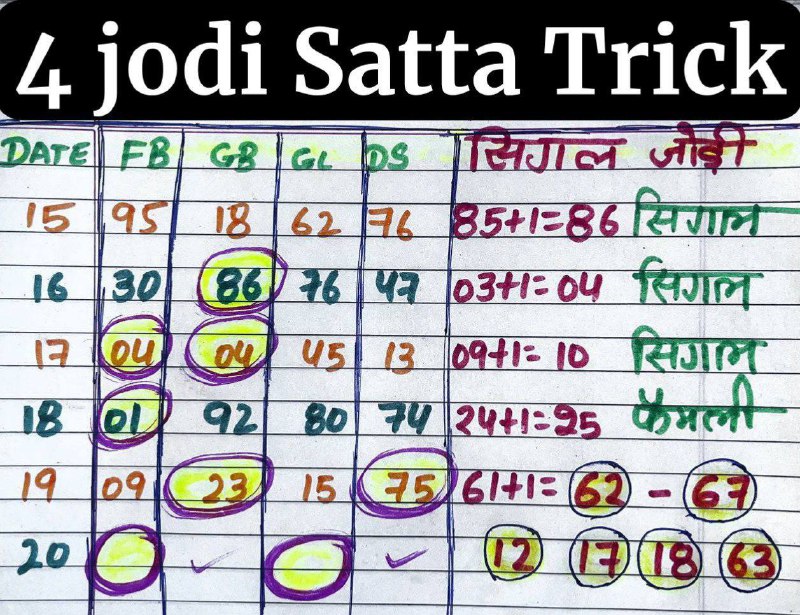 4 jodi Satta Trick
DATE FB GB GL DS सिगल जोड़ी
15 95 18 62 76 85+1=86 सिगल
16 30 86 76 47 03+1=04 सिगल
17 04 04 45 13 09+1=10 सिगल
18 01 92 80 74 24+1=25 फैमली
19 09 23 15 75 61+1=62-67
20 12 17 18 63